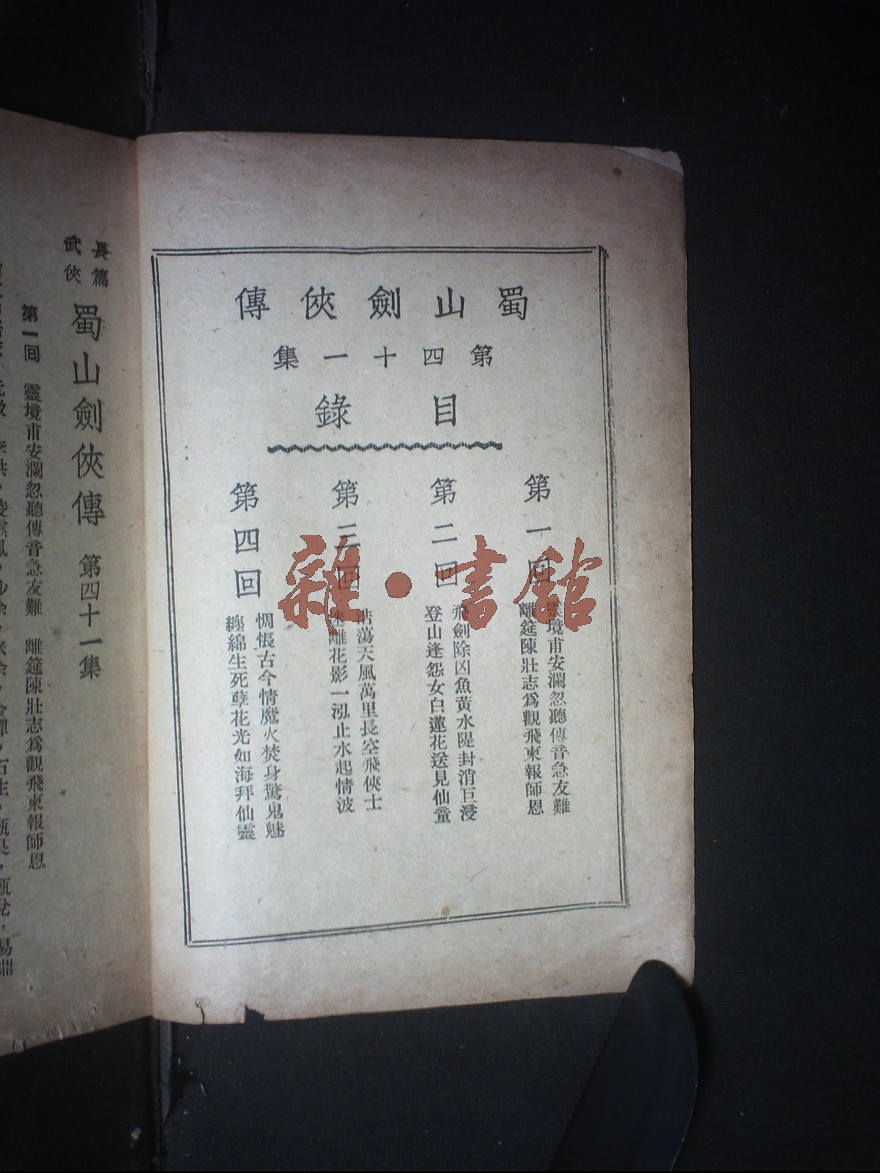 蜀山劍俠傳
第四十一集
目錄
第一回
靈境甫安瀾忽聽傳音急友難
離筵陳壯志爲觀飛柬報師恩
第二回
飛劍除凶魚黃水隄封消巨浸
登山逢怨女白蓮花送見仙童
第三回
浩蕩天風萬里長空飛俠士
迷離花影一泓止水起情波
第四回
惆悵古今情魔火焚身驚鬼魅
纏綿生死孽花光如海拜仙靈
長篇
武俠
蜀山劍俠傳 第四十一集
第一回 靈境甫安瀾忽聽傳音急友難 離筵陳壯志爲觀飛柬報師恩
雜·書館